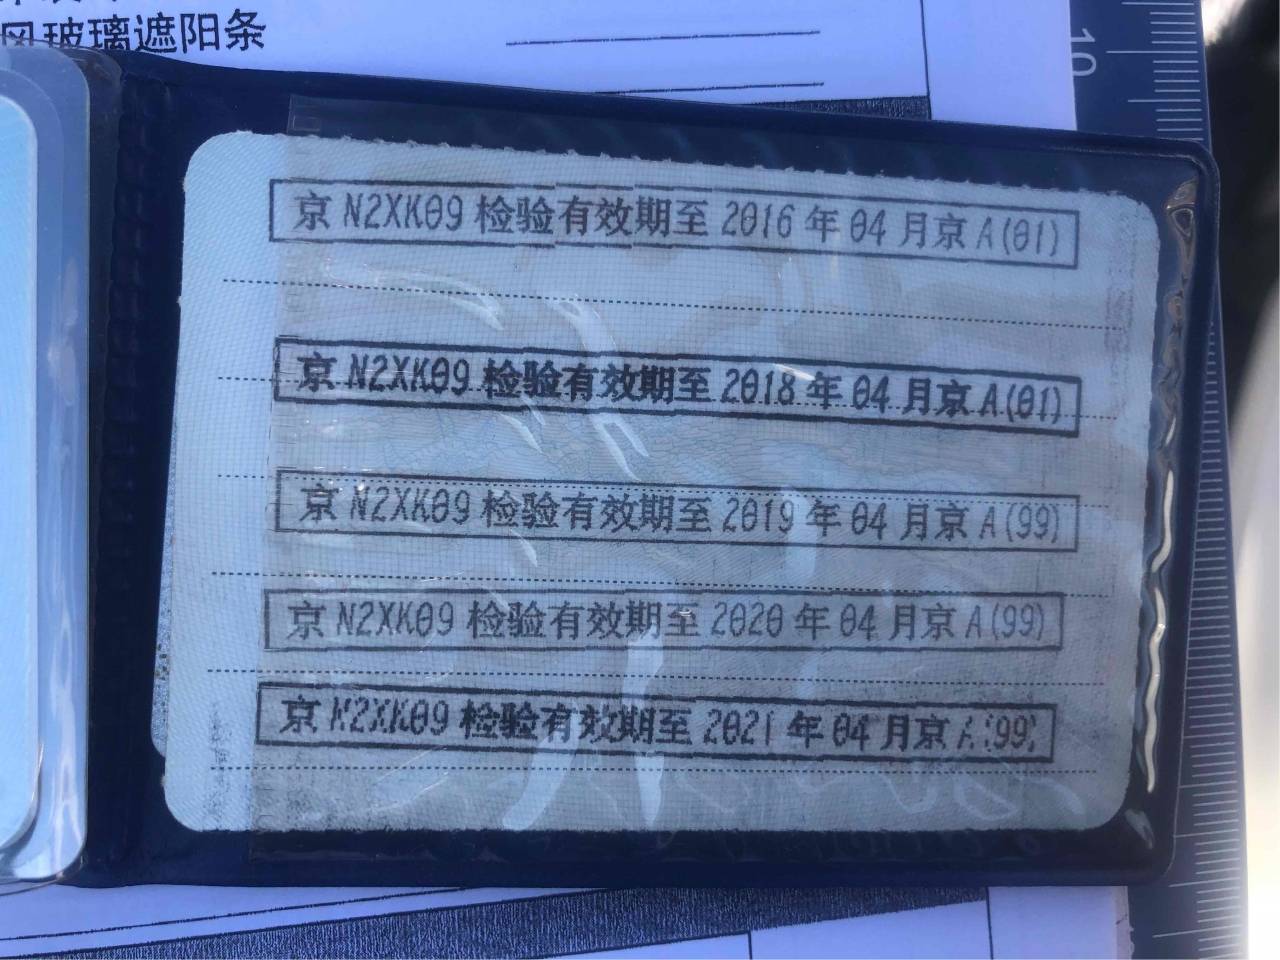 风玻璃遮阳条
10
京 N2XK09 检验有效期至 2016 年 04 月京 A(01)
京 N2XK09 检验有效期至 2018 年 04 月京 A(01)
京 N2XK09 检验有效期至 2019 年 04 月京 A(99)
京 N2XK09 检验有效期至 2020 年 04 月京 A(99)
京 N2XK09 检验有效期至 2021 年 04 月京 A(99)